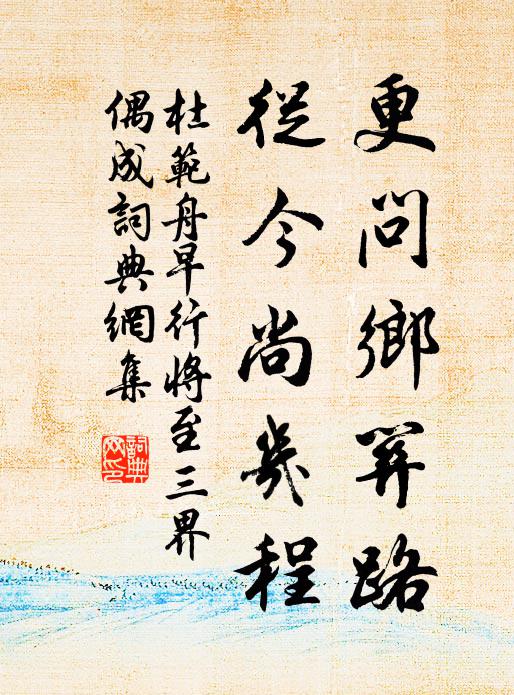 更問鄉關路
從今尚幾程
杜範舟早行將至三界
偶成詞典網集
詞典
网印